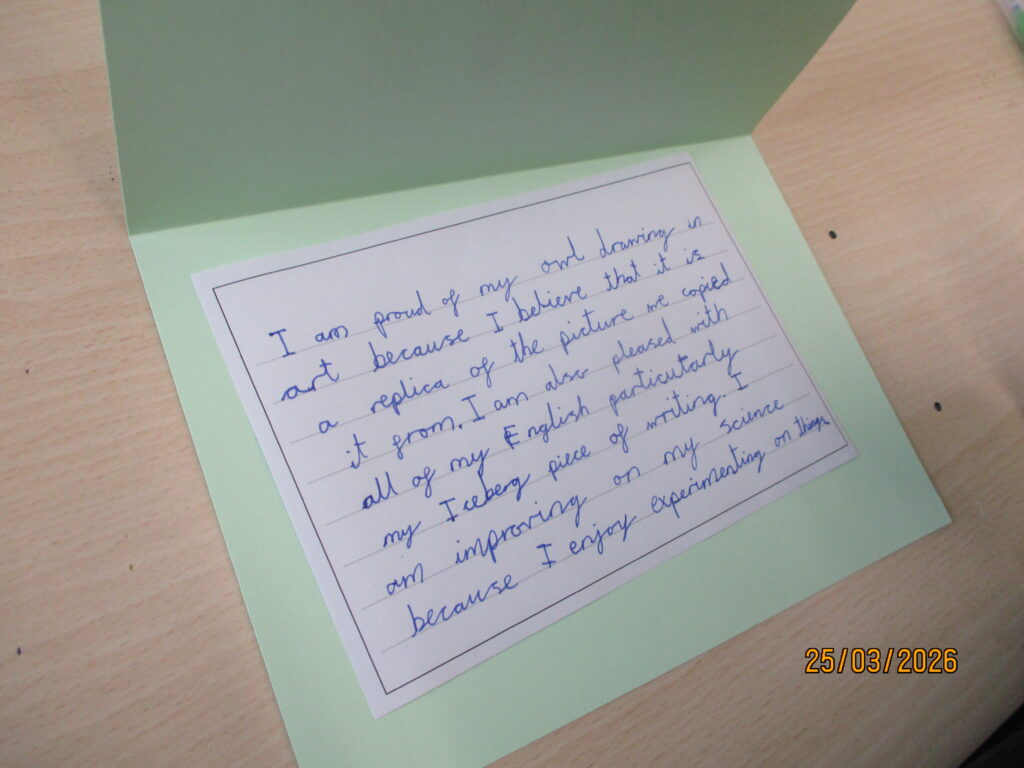 I am proud of my owl drawing in
art because I believe that it is
a replica of the picture we copied
it from. I am also pleased with
all of my English particutarly
my Iceberg piece of writing. I
am improving on my science
because I enjoy experimenting on things.
25/03/2026